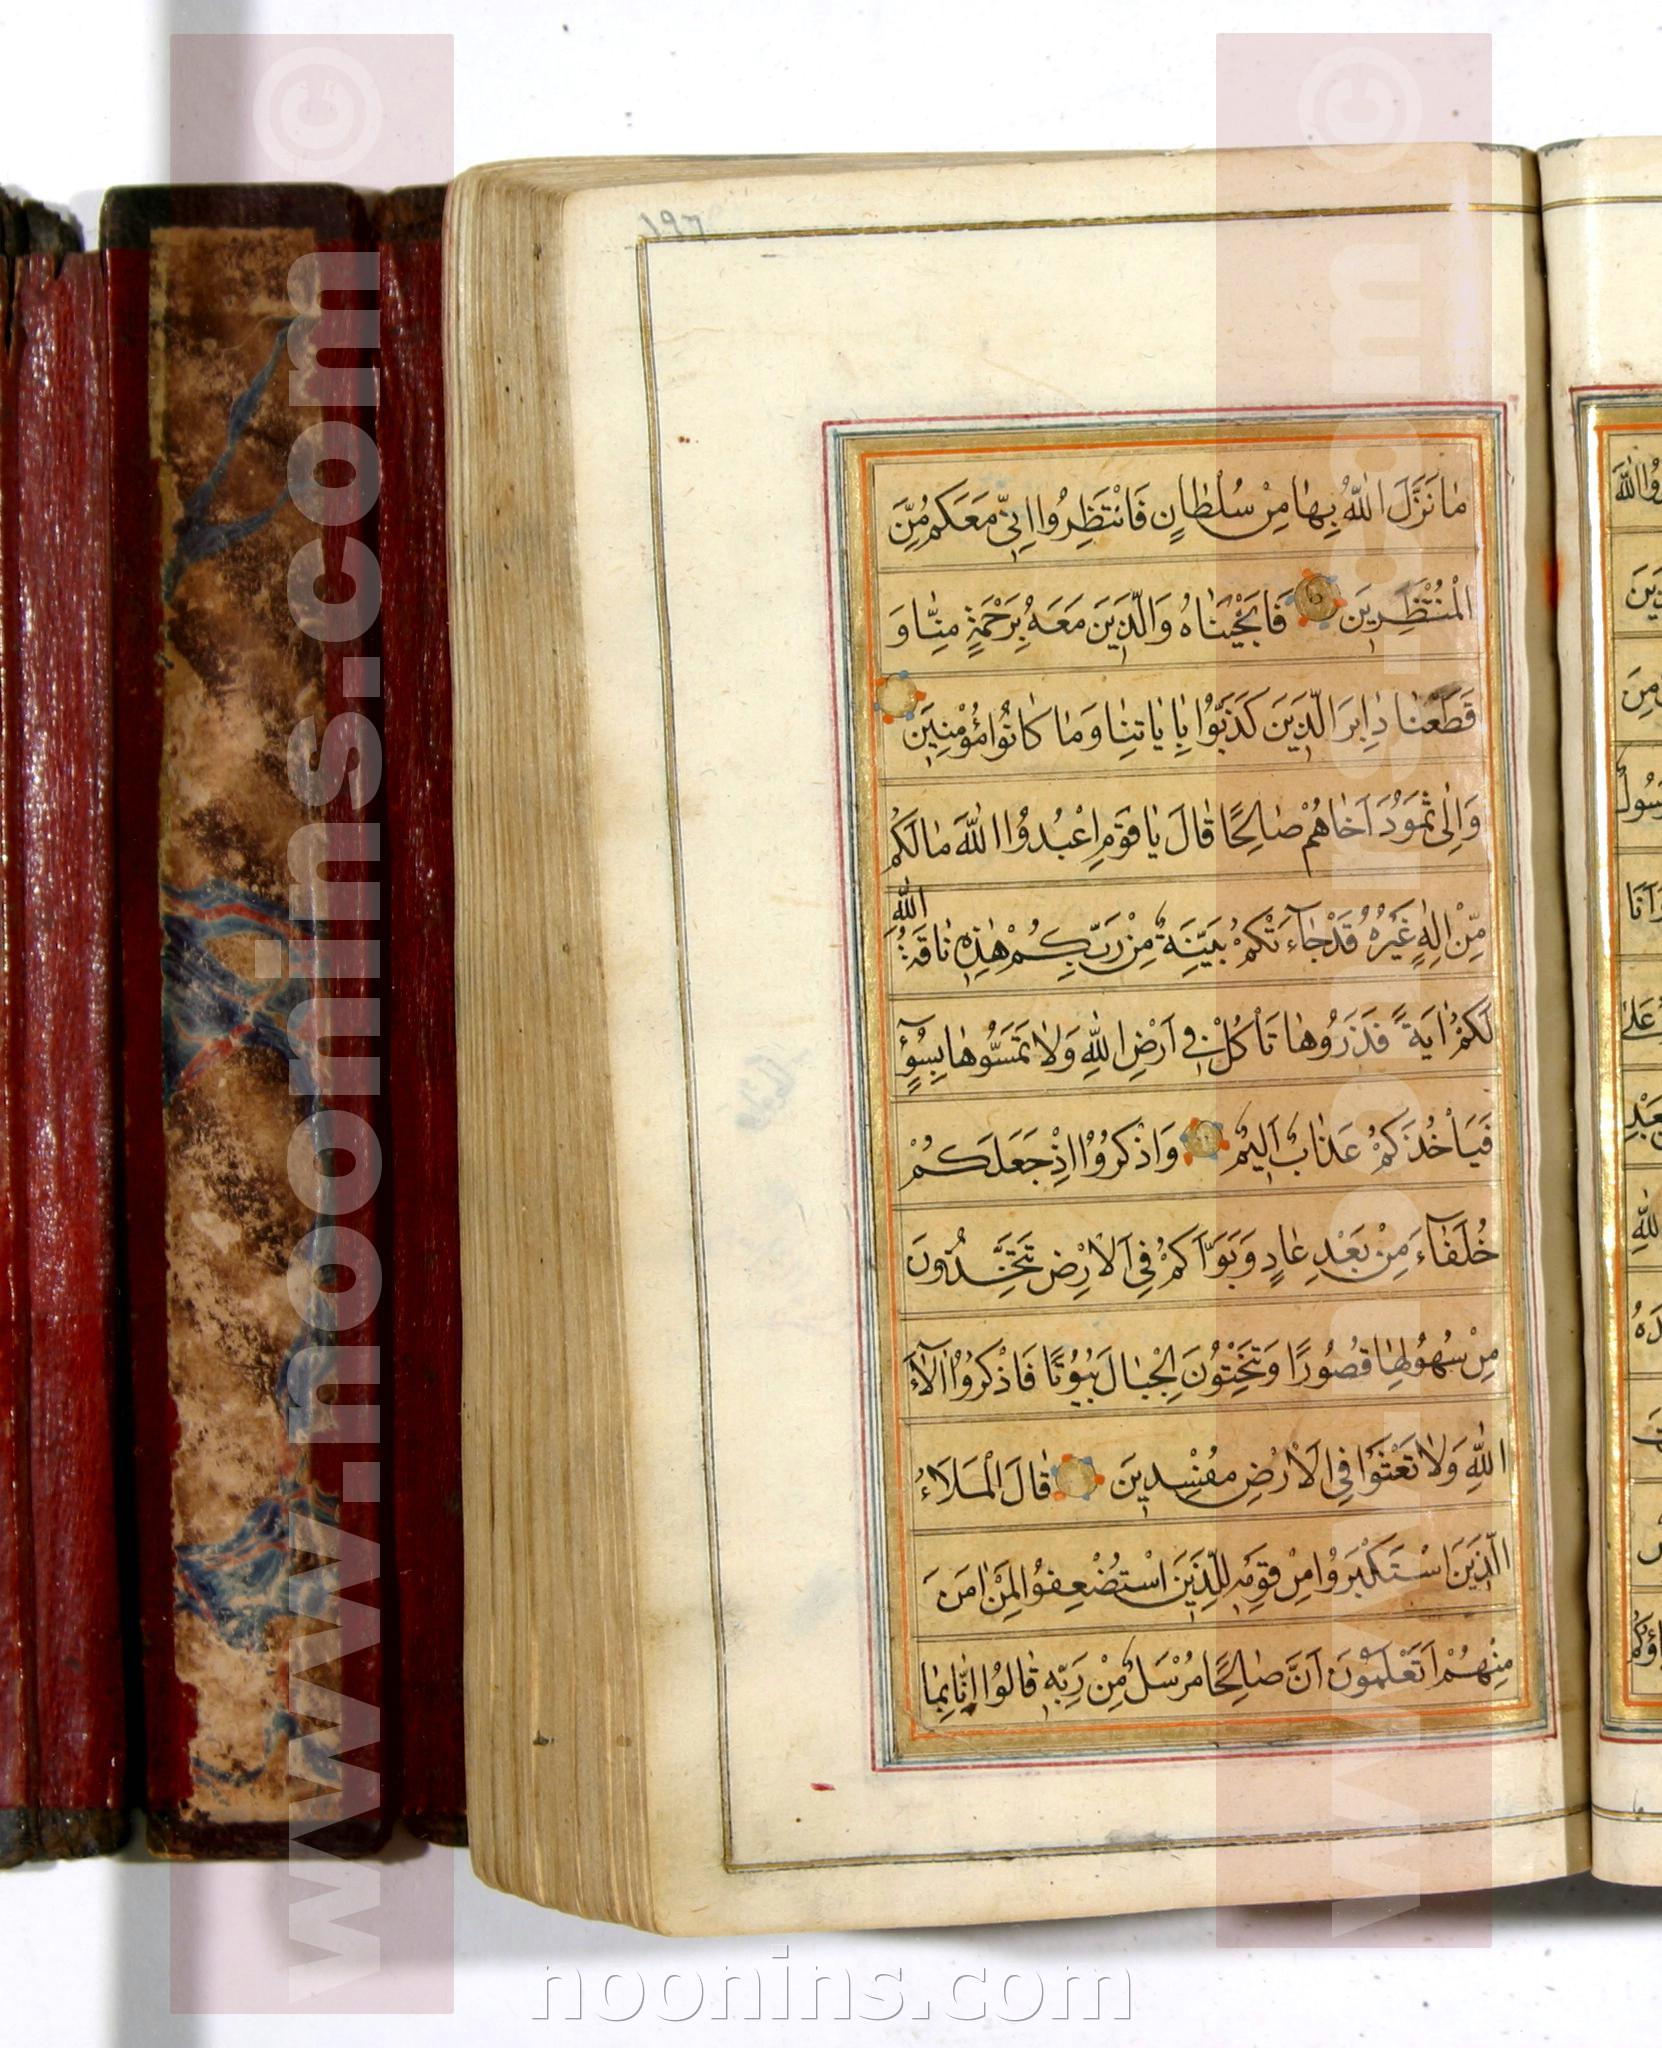 ١٩٦
مٰا نَزَّلَ اللّٰهُ بِهٰا مِنْ سُلْطٰانٍ فَانْتَظِرُوا اِنّٖي مَعَكُمْ مِنَ
الْمُنْتَظِرٖينَ فَاَنْجَيْنٰاهُ وَالَّذٖينَ مَعَهُ بِرَحْمَةٍ مِنّٰا وَ
قَطَعْنٰا دٰابِرَ الَّذٖينَ كَذَّبُوا بِاٰيٰاتِنٰا وَمٰا كٰانُوا مُؤْمِنٖينَ
وَاِلىٰ ثَمُودَ اَخٰاهُمْ صٰالِحًا قٰالَ يٰا قَوْمِ اعْبُدُوا اللّٰهَ مٰا لَكُمْ
مِنْ اِلٰهٍ غَيْرُهُ قَدْ جٰآءَتْكُمْ بَيِّنَةٌ مِنْ رَبِّكُمْ هٰذِهٖ نٰاقَةُ اللّٰهِ
لَكُمْ اٰيَةً فَذَرُوهٰا تَأْكُلْ فٖي اَرْضِ اللّٰهِ وَلٰا تَمَسُّوهٰا بِسُوٓءٍ
فَيَأْخُذَكُمْ عَذٰابٌ اَلٖيمٌ وَاذْكُرُوا اِذْ جَعَلَكُمْ
خُلَفٰآءَ مِنْ بَعْدِ عٰادٍ وَبَوَّاَكُمْ فِي الْاَرْضِ تَتَّخِذُونَ
مِنْ سُهُولِهٰا قُصُورًا وَتَنْحِتُونَ الْجِبٰالَ بُيُوتًا فَاذْكُرُوا اٰلٰآءَ
اللّٰهِ وَلٰا تَعْثَوْا فِي الْاَرْضِ مُفْسِدٖينَ قٰالَ الْمَلَاُ
الَّذٖينَ اسْتَكْبَرُوا مِنْ قَوْمِهٖ لِلَّذٖينَ اسْتُضْعِفُوا لِمَنْ اٰمَنَ
مِنْهُمْ اَتَعْلَمُونَ اَنَّ صٰالِحًا مُرْسَلٌ مِنْ رَبِّهٖ قٰالُوا اِنّٰا بِمٰا
www.noonins.com ©
www.noonins.com ©
noonins.com